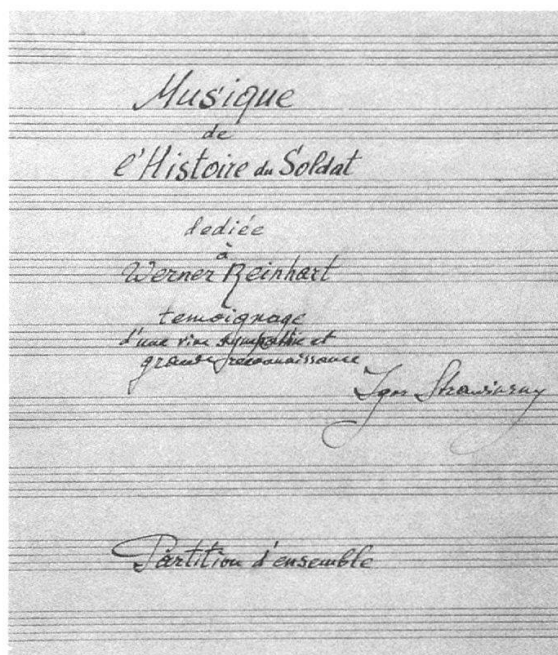 Musique
de
l'Histoire du Soldat
dediée
à
Werner Reinhart
temoignage
d'une vive sympathie et
grande reconnaissance
Igor Strawinsky
Partition d'ensemble